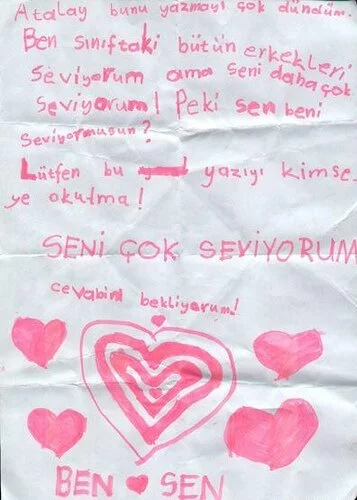 Atalay bunu yazmayı çok dündüm.
Ben sınıftaki bütün erkekleri
seviyorum ama seni daha çok
seviyorum! Peki sen beni
seviyormusun?
Lütfen bu yazıyı kimse
ye okutma!
SENİ ÇOK SEVİYORUM
cevabını bekliyorum!
BEN SEN